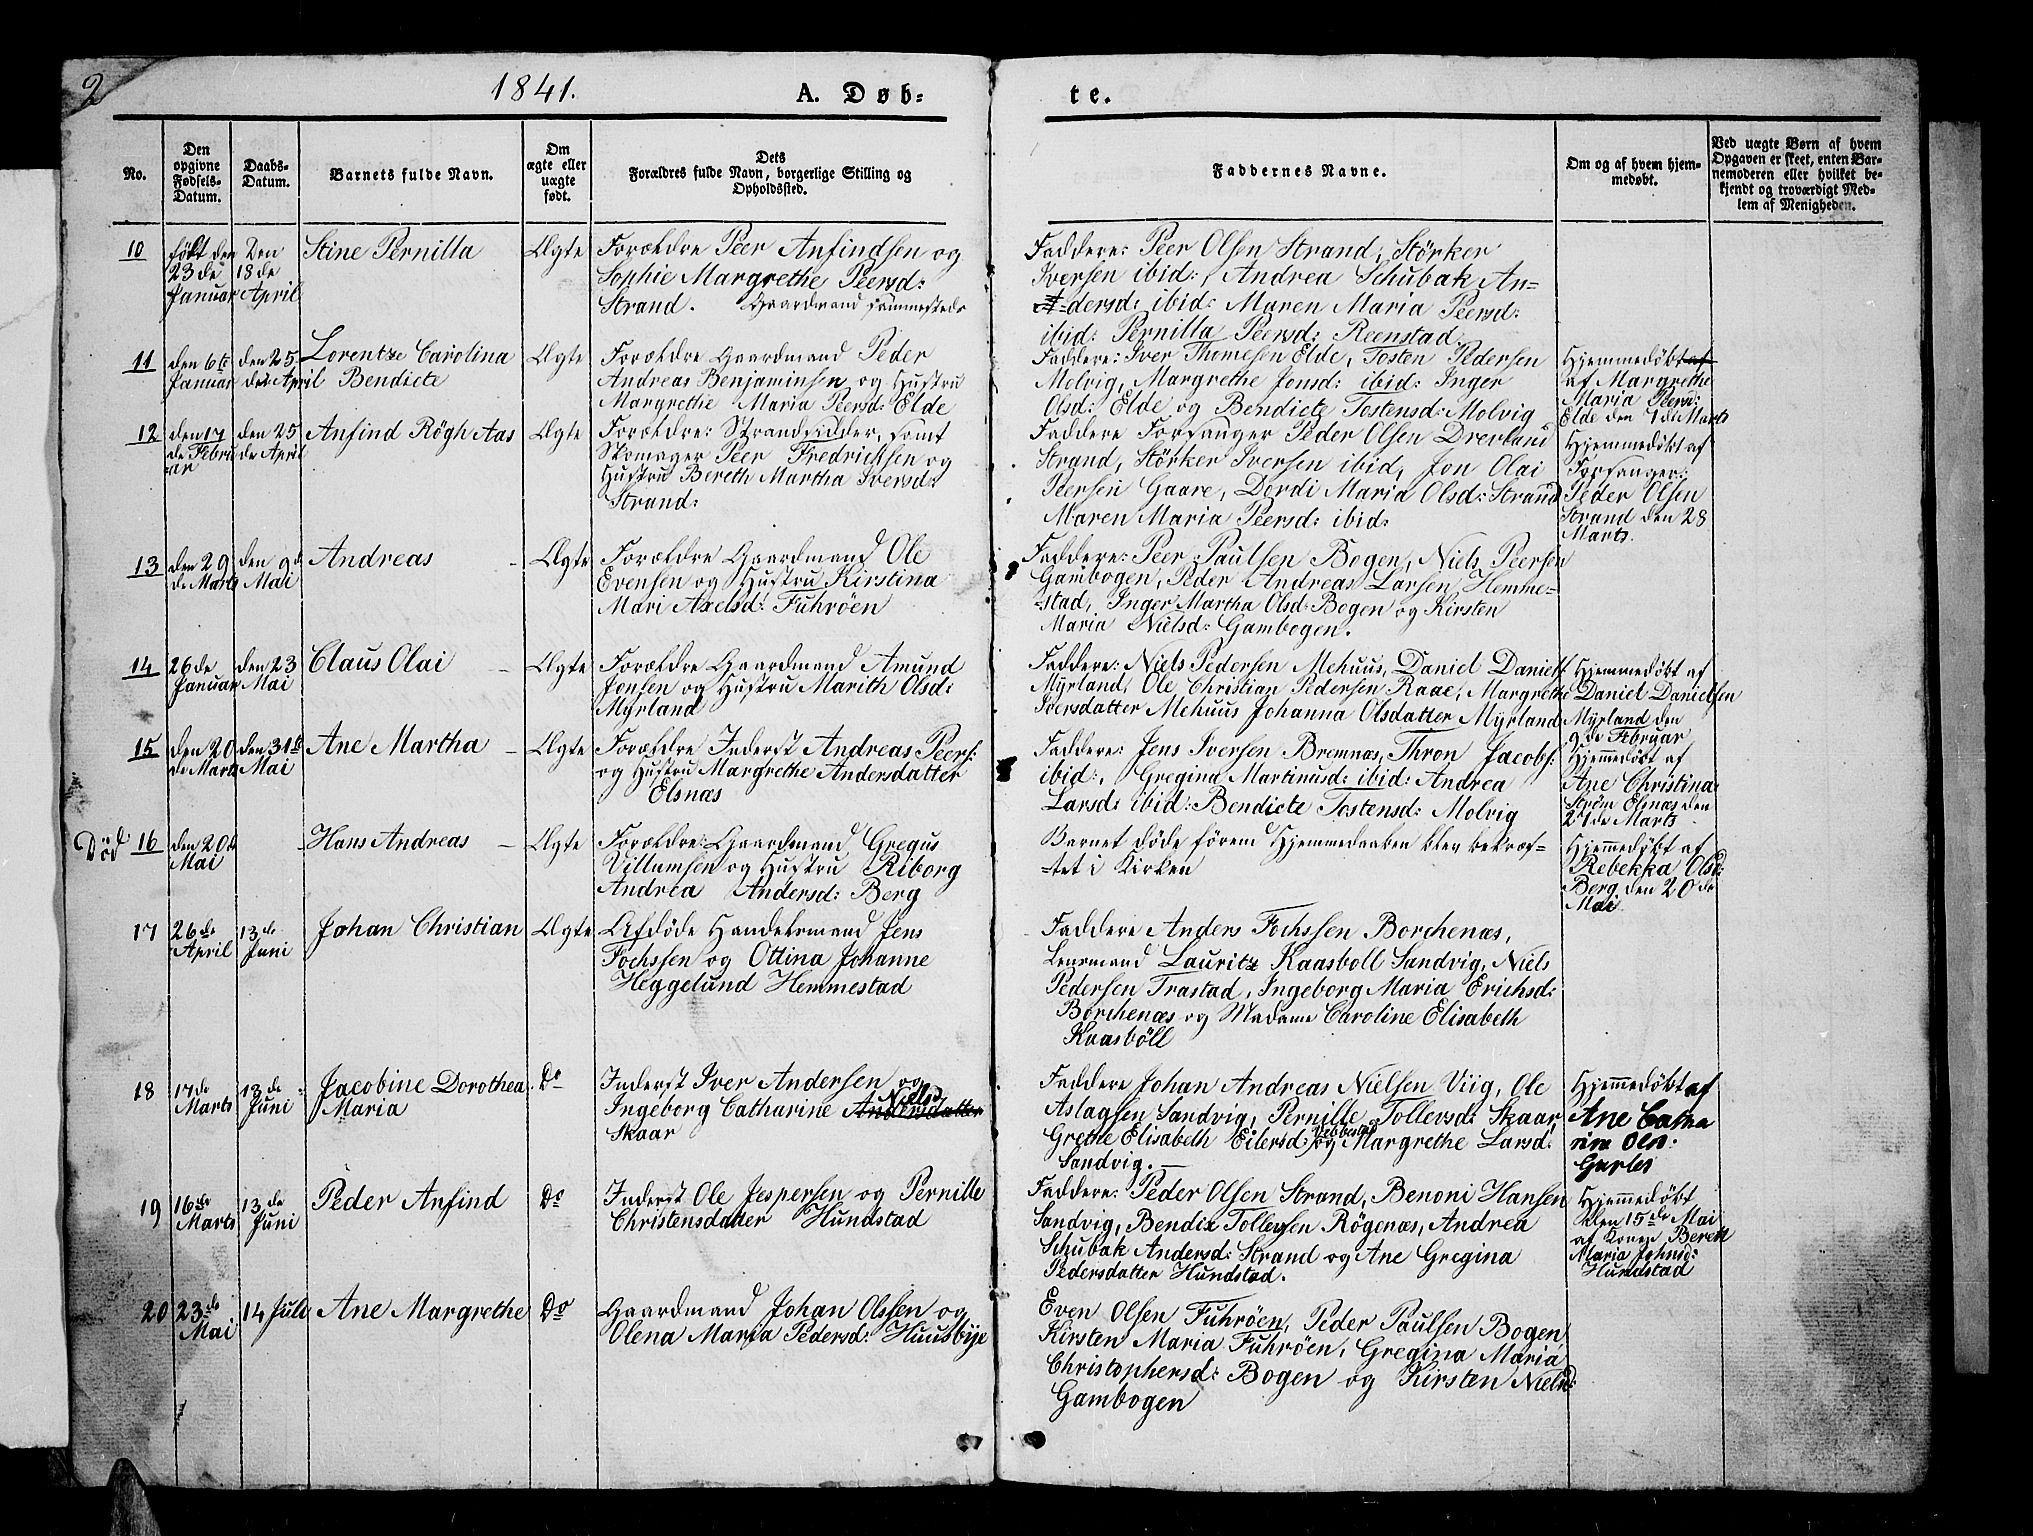 2
1841.
A. Døb-
te.
No.
Den
opgivne
Fødsels-
Datum.
Daabs-
Datum.
Barnets fulde Navn.
Om
ægte eller
uægte
født.
Dets
Forældres fulde Navn, borgerlige Stilling og
Opholdssted.
Faddernes Navne.
Om og af hvem hjem-
medøbt.
Ved uægte Børn af hvem
Opgaven er skeet, enten Bar-
nemoderen eller hvilket be-
kjendt og troværdigt Med-
lem af Menigheden.
10
født den
23de
Januar
Den
18de
April
Stine Pernilla
Ægte
Forældre Peer Anfindsen og
Sophie Margrethe Peersd:
Strand. Gaardmand sammesteds
Faddere: Peer Olsen Strand, Störker
Iversen ibid:, Andrea Schubak An=
dersd: ibid: Maren Maria Peersd:
ibid: Pernilla Peersd: Reenstad.
11
den 6te
Januar
den 25
de April
Lorentze Carolina
Bendicte
Ægte
Forældre Gaardmand Peder
Andreas Benjaminsen og Hustru
Margrethe Maria Peersd: Elde
Faddere: Iver Thomesen Elde, Tosten Pedersen
Molvig, Margrethe Jonsd: ibid: Inger
Olsd: Elde og Bendicte Tostensd: Molvig
Hjemmedøbt af
af Margrethe
Maria Peersd:
Elde den 7de Marts
12
den 17
de Febru
ar
den 25
de April
Anfind Rögh Aas
Ægte
Forældre: Strandsidder, samt
Skomager Peer Fredrichsen og
Hustru Bereth Martha Iversd:
Strand:
Faddere Forsanger Peder Olsen Drevland
Strand, Störker Iversen ibid, Jon Olai
Peersen Gaare, Dordi Maria Olsd: Strand
Maren Maria Peersd: ibid:
Hjemmedøbt af
Forsanger:
Peder Olsen
Strand den 28
Marts.
13
den 29
de Marts
den 9de
Mai
Andreas
Ægte
Forældre Gaardmand Ole
Evensen og Hustru Kirstina
Mari Axelsd: Fuhröen
Faddere: Peer Paulsen Bogen, Niels Peersen
Gambogen, Peder Andreas Larsen Hemme=
=stad, Inger Martha Olsd: Bogen og Kirsten
Maria Nielsd: Gambogen.
14
26de
Januar
den 23
Mai
Claus Olai
Ægte
Forældre Gaardmand Amund
Jonsen og Hustru Marith Olsd:
Myrland
Faddere: Niels Pedersen Mehuus, Daniel Daniels.
Myrland, Ole Christian Pedersen Raae, Margrethe
Iversdatter Mehuus Johanna Olsdatter Myrland
Hjemmedøbt af
Daniel Danielsen
Myrland den
9de Februar
15
den 20
de Marts
den 31te
Mai
Ane Martha
Ægte
Forældre Inderst Andreas Peers:
og Hustru Margrethe Andersdatter
Elsnæs
Faddere: Jens Iversen Bremnæs, Thron Jacobs:
ibid:, Gregina Martinusd: ibid: Andrea
Larsd: ibid: Bendicte Tostensd: Molvig
Hjemmedøbt af
Ane Christina
Strøm Elsnæs den
21de Marts
Død
16
den 20de
Mai
Hans Andreas
Ægte
Forældre: Gaardmand Gregus
Villumsen og Hustru Riborg
Andrea Andersd: Berg
Barnet döde förend Hjemmedaaben blev bekræf=
=tet i Kirken
Hjemmedøbt af
Rebekka Olsd:
Berg den 20de
Mai
17
26de
April
13de
Juni
Johan Christian
Ægte
Afdöde Handelsmand Jens
Fochssen og Ottina Johanne
Heggelund Hemmestad
Faddere Anders Fochssen Borchenæs,
Lensmand Lauritz Kaasboll Sandvig, Niels
Pedersen Trastad, Ingeborg Maria Erichsd:
Borchenæs og Madame Caroline Elisabeth
Kaasböll
18
17de
Marts
13de
Juni
Jacobine Dorothea
Maria
Do
Inderst Iver Andersen og
Nielsd
Ingeborg Catharine Andersdatter
Skaar
Faddere Johan Andreas Nielsen Viig, Ole
Aslagsen Sandvig, Pernille Tollersd: Skaar,
Grethe Elisabeth Eilersd og Margrethe Larsd:
Sandvig.
Hjemmedøbt af
Ane Catha
rina Ols:
19
16de
Marts
13de
Juni
Peder Anfind
Do
Inderst Ole Jespersen og Pernille
Christensdatter Hundstad
Faddere: Peder Olsen Strand, Benoni Hansen
Sandvig, Bendix Tollefsen Rögenæs, Andrea
Schubak Andersd: Strand og Ane Gregina
Pedersdatter Hundstad.
Hjemmedøbt
den 15de Mai
af Konen Bereth
Maria Johnsd:
Hundstad
20
23de
Mai
14 Juli
Ane Margrethe
Do
Gaardmand Johan Olssen og
Olena Maria Pedersd: Huusbye
Even Olsen Fuhröen, Peder Paulsen Bogen,
Kirsten Maria Fuhröen, Gregina Maria
Christophersd: Bogen og Kirsten Nielsd:
Gambogen